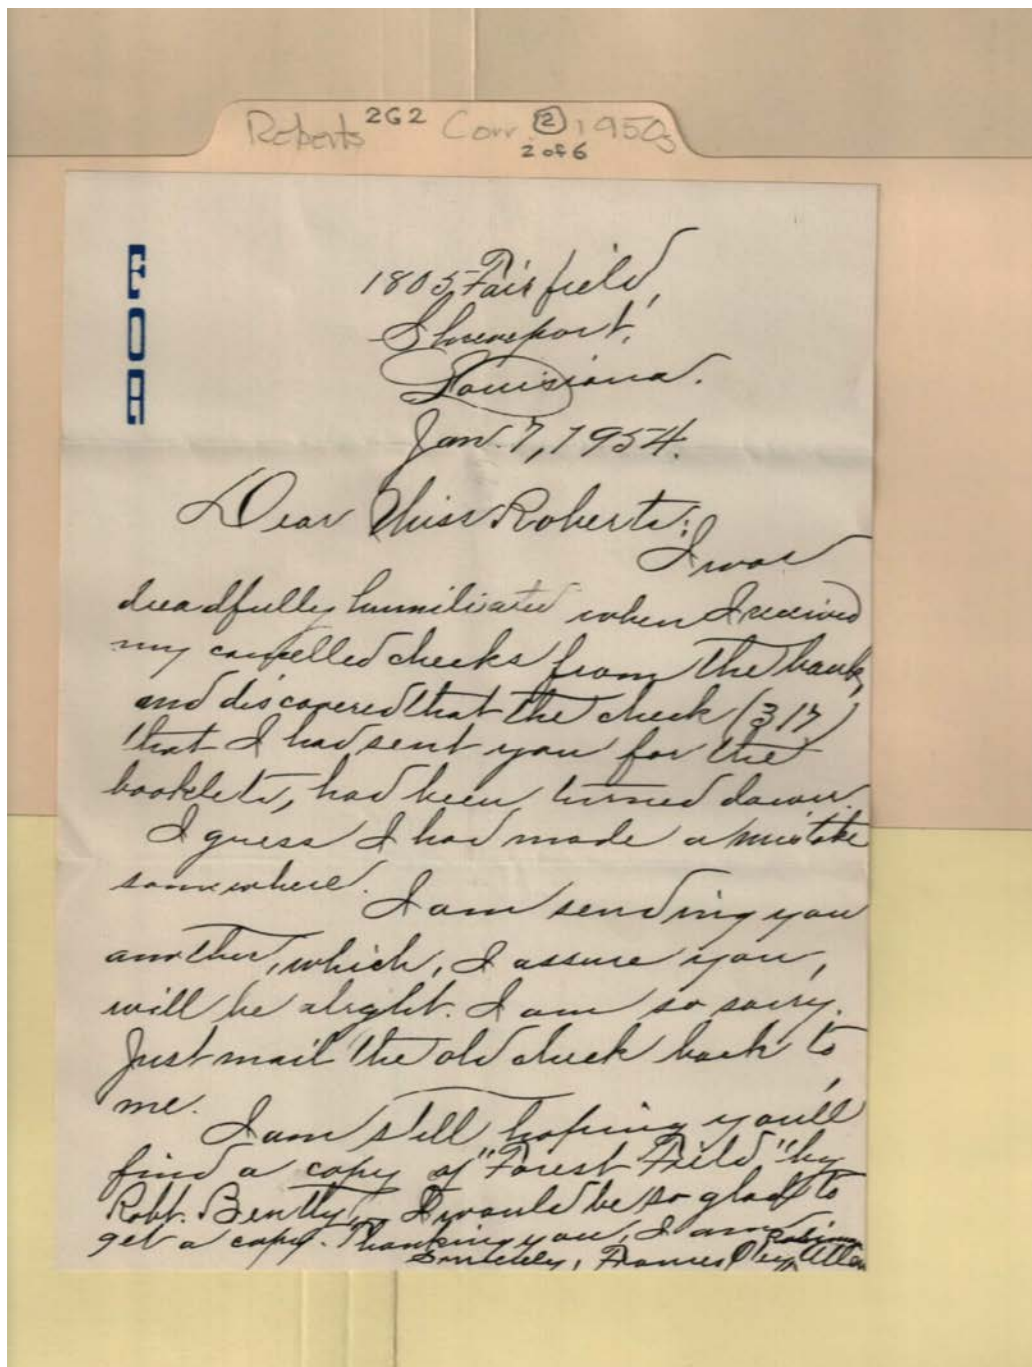 Roberts 2G2 Corr. 2 1950s
2 of 6
F
O
A
1805 Fairfield,
Shreveport,
Louisiana.
Jan. 7, 1954.
Dear Miss Roberts:
I was
dreadfully humiliated when I received
my cancelled checks from the bank,
and discovered that the check (317)
that I had sent you for the
booklets, had been turned down.
I guess I had made a mistake
somewhere.
I am sending you
another, which, I assure you,
will be alright. I am so sorry.
Just mail the old check back to
me.
I am still hoping you'll
find a copy of "Forest Field" by
Robt. Bently. I would be so glad to
get a copy. Thanking you, I am
Sincerely, Frances Allen